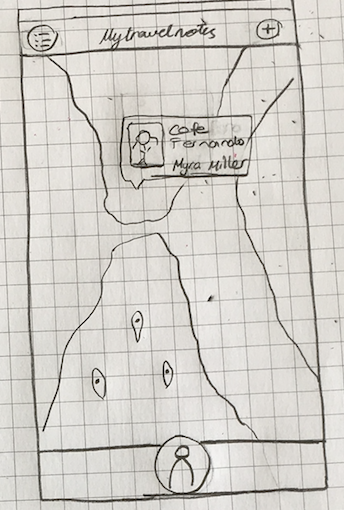 My travel notes
Cafe
Fernando
Myra Miller